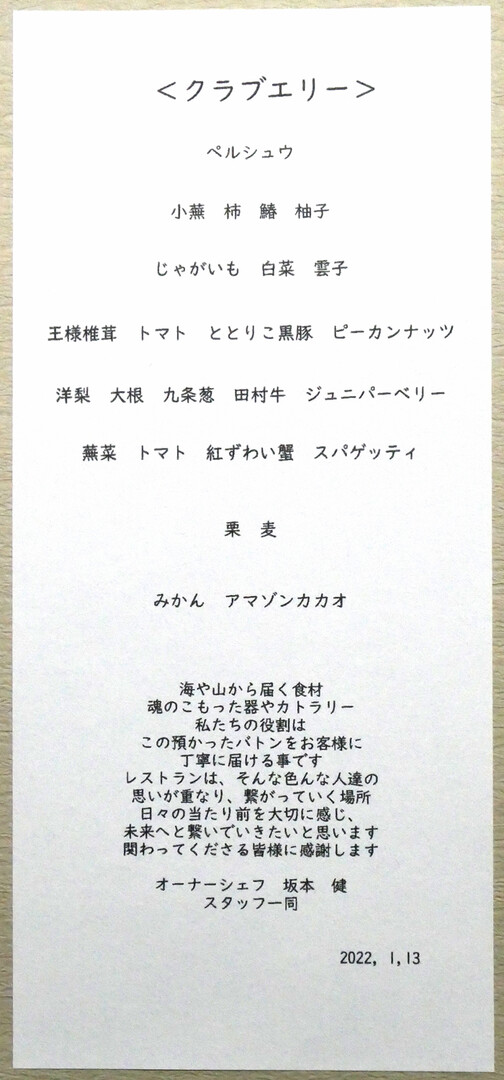 ＜クラブエリー＞
ペルシュウ
小蕪　柿　鰆　柚子
じゃがいも　白菜　雲子
王様椎茸　トマト　ととりこ黒豚　ピーカンナッツ
洋梨　大根　九条葱　田村牛　ジュニパーベリー
蕪菜　トマト　紅ずわい蟹　スパゲッティ
栗　麦
みかん　アマゾンカカオ
海や山から届く食材
魂のこもった器やカトラリー
私たちの役割は
この預かったバトンをお客様に
丁寧に届ける事です
レストランは、そんな色んな人達の
思いが重なり、繋がっていく場所
日々の当たり前を大切に感じ、
未来へと繋いでいきたいと思います
関わってくださる皆様に感謝します
オーナーシェフ　坂本　健
スタッフ一同
2022, 1,13